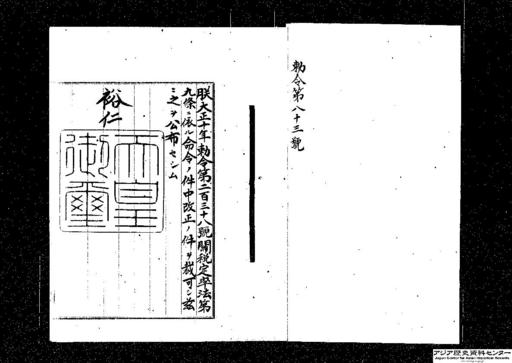 勅令第八十三號
朕大正十年勅令第二百三十八號關税定率法第
九條ニ依ル命令ノ件中改正ノ件ヲ裁可シ茲
ニ之ヲ公布セシム
裕仁
天皇
御璽
アジア歴史資料センター
Japan Center for Asian Historical Records